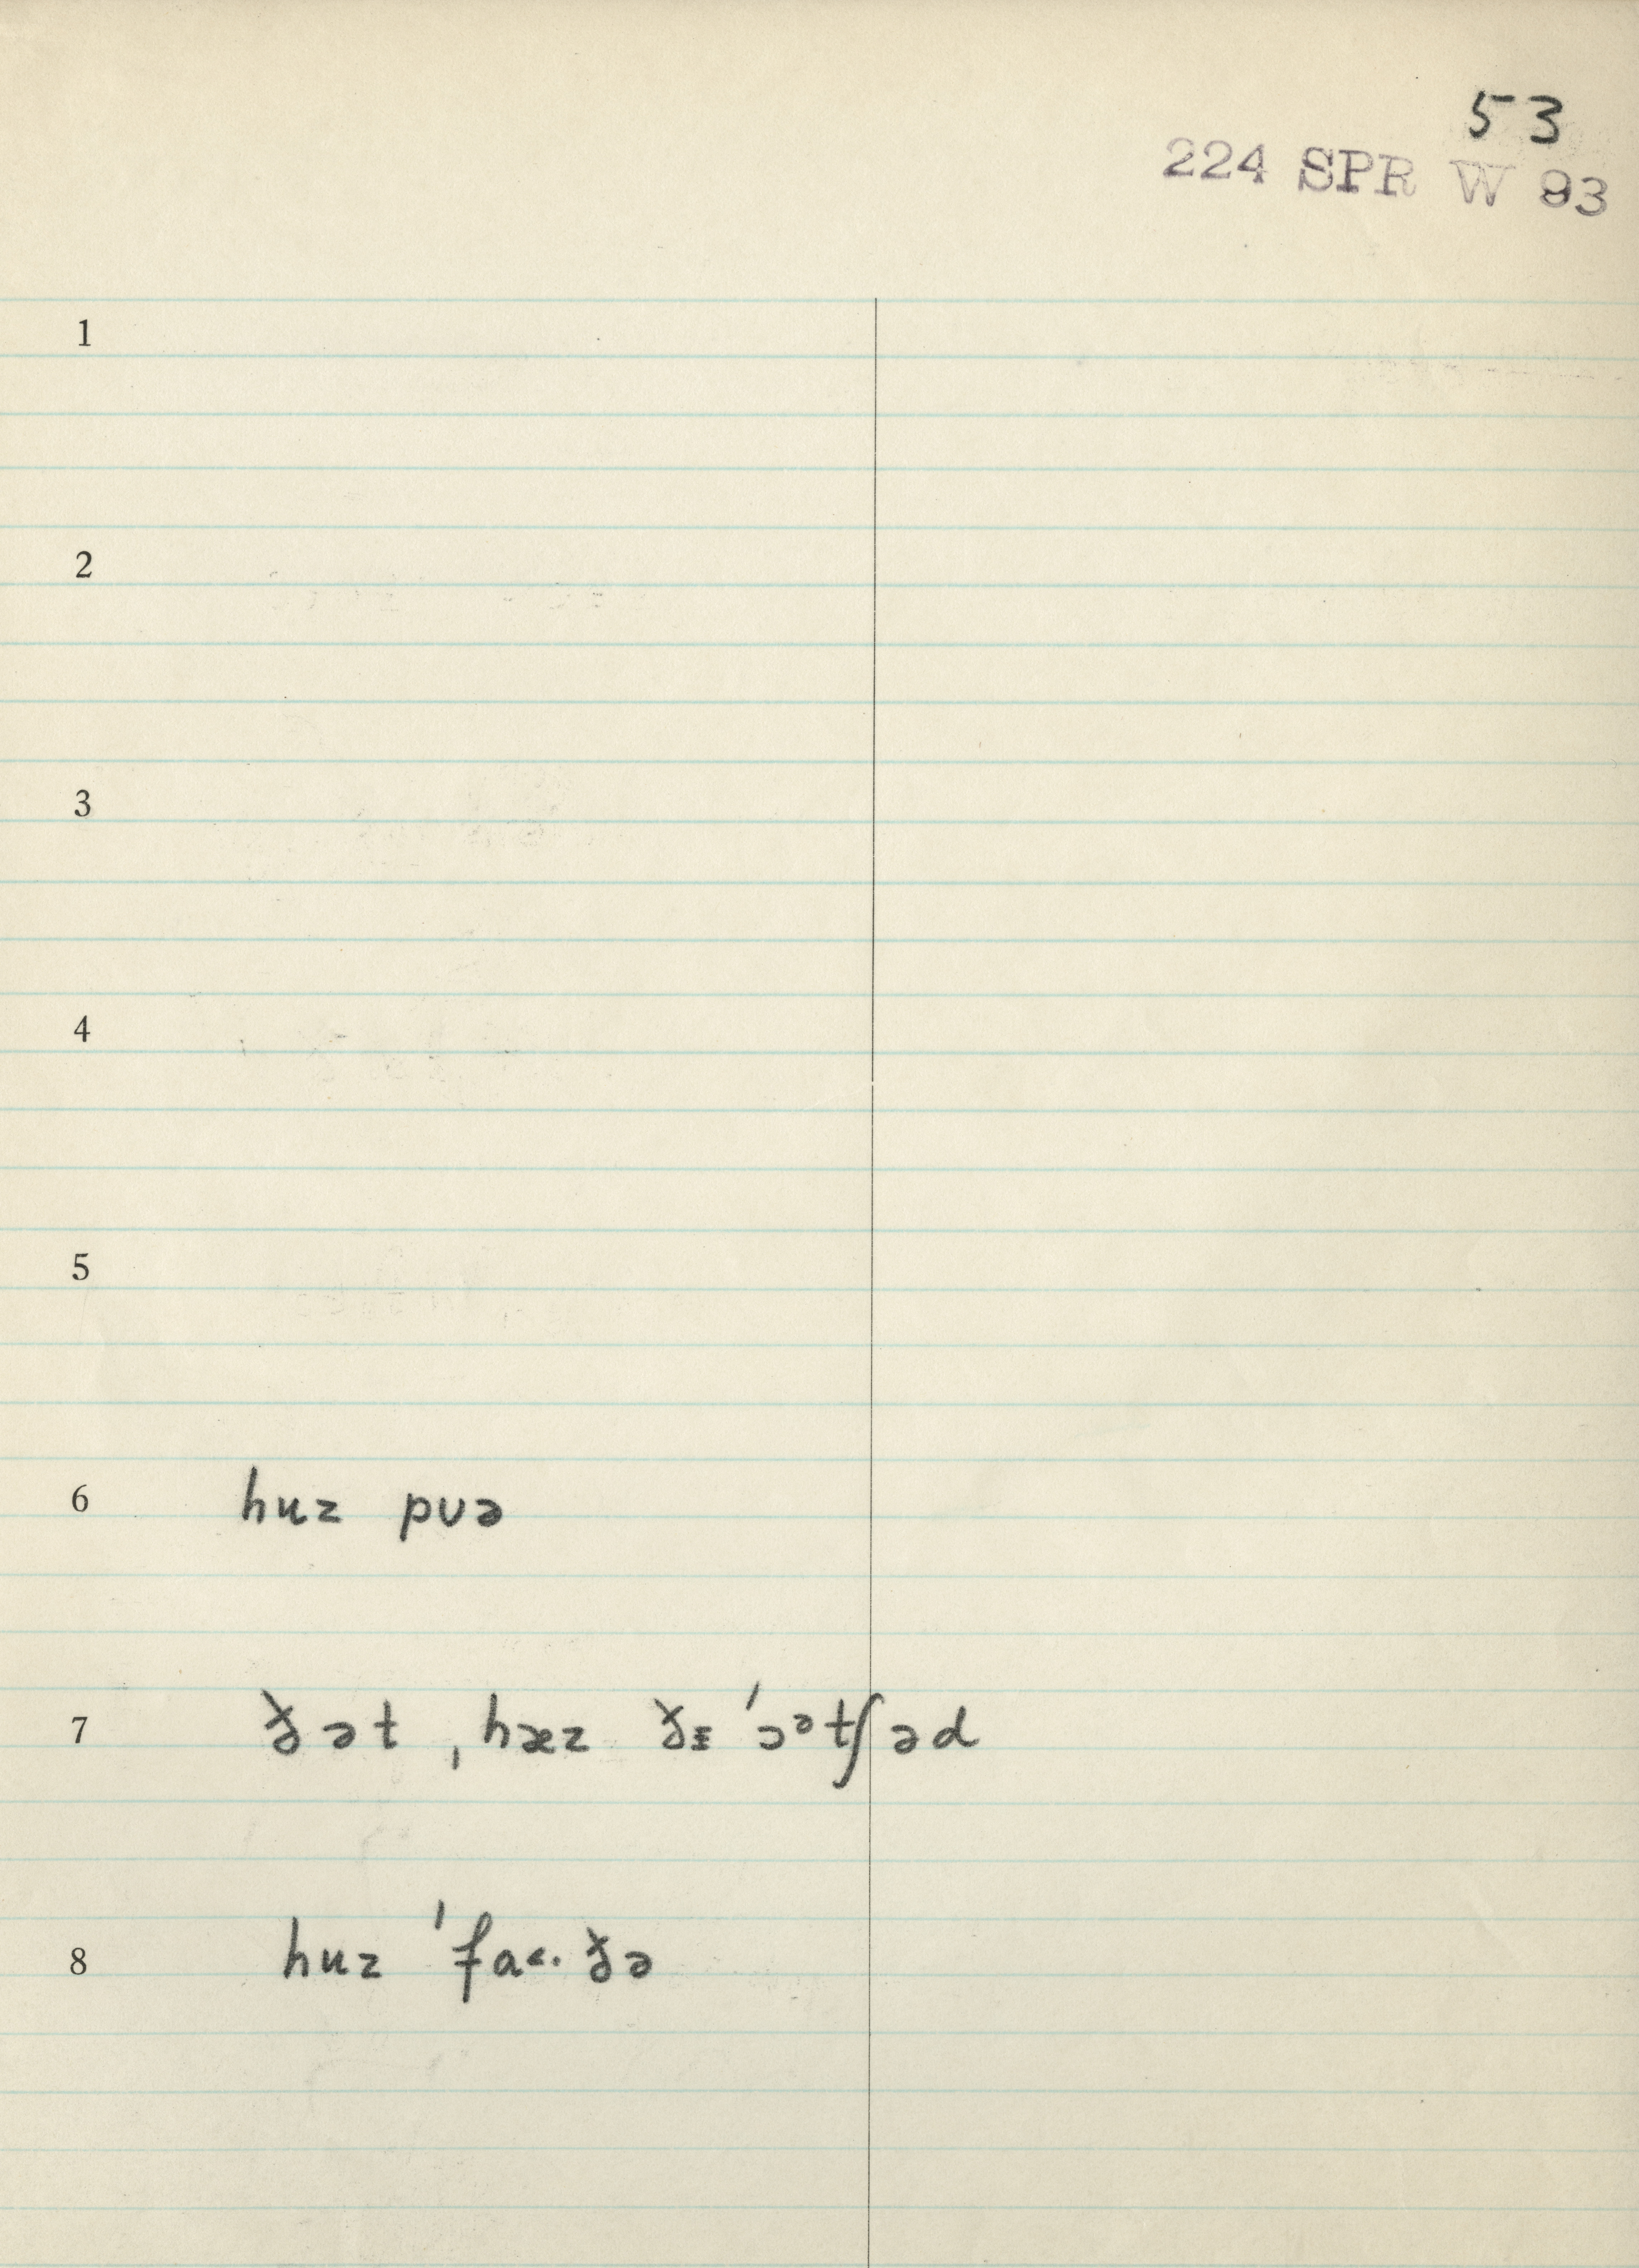 53
224 SPR W 93
1
2
3
4
5
6 huz pʊə
7 ðət ˌhæz ðɪ ˈɔᵊtʃəd
8 huz ˈfa˂· ðə